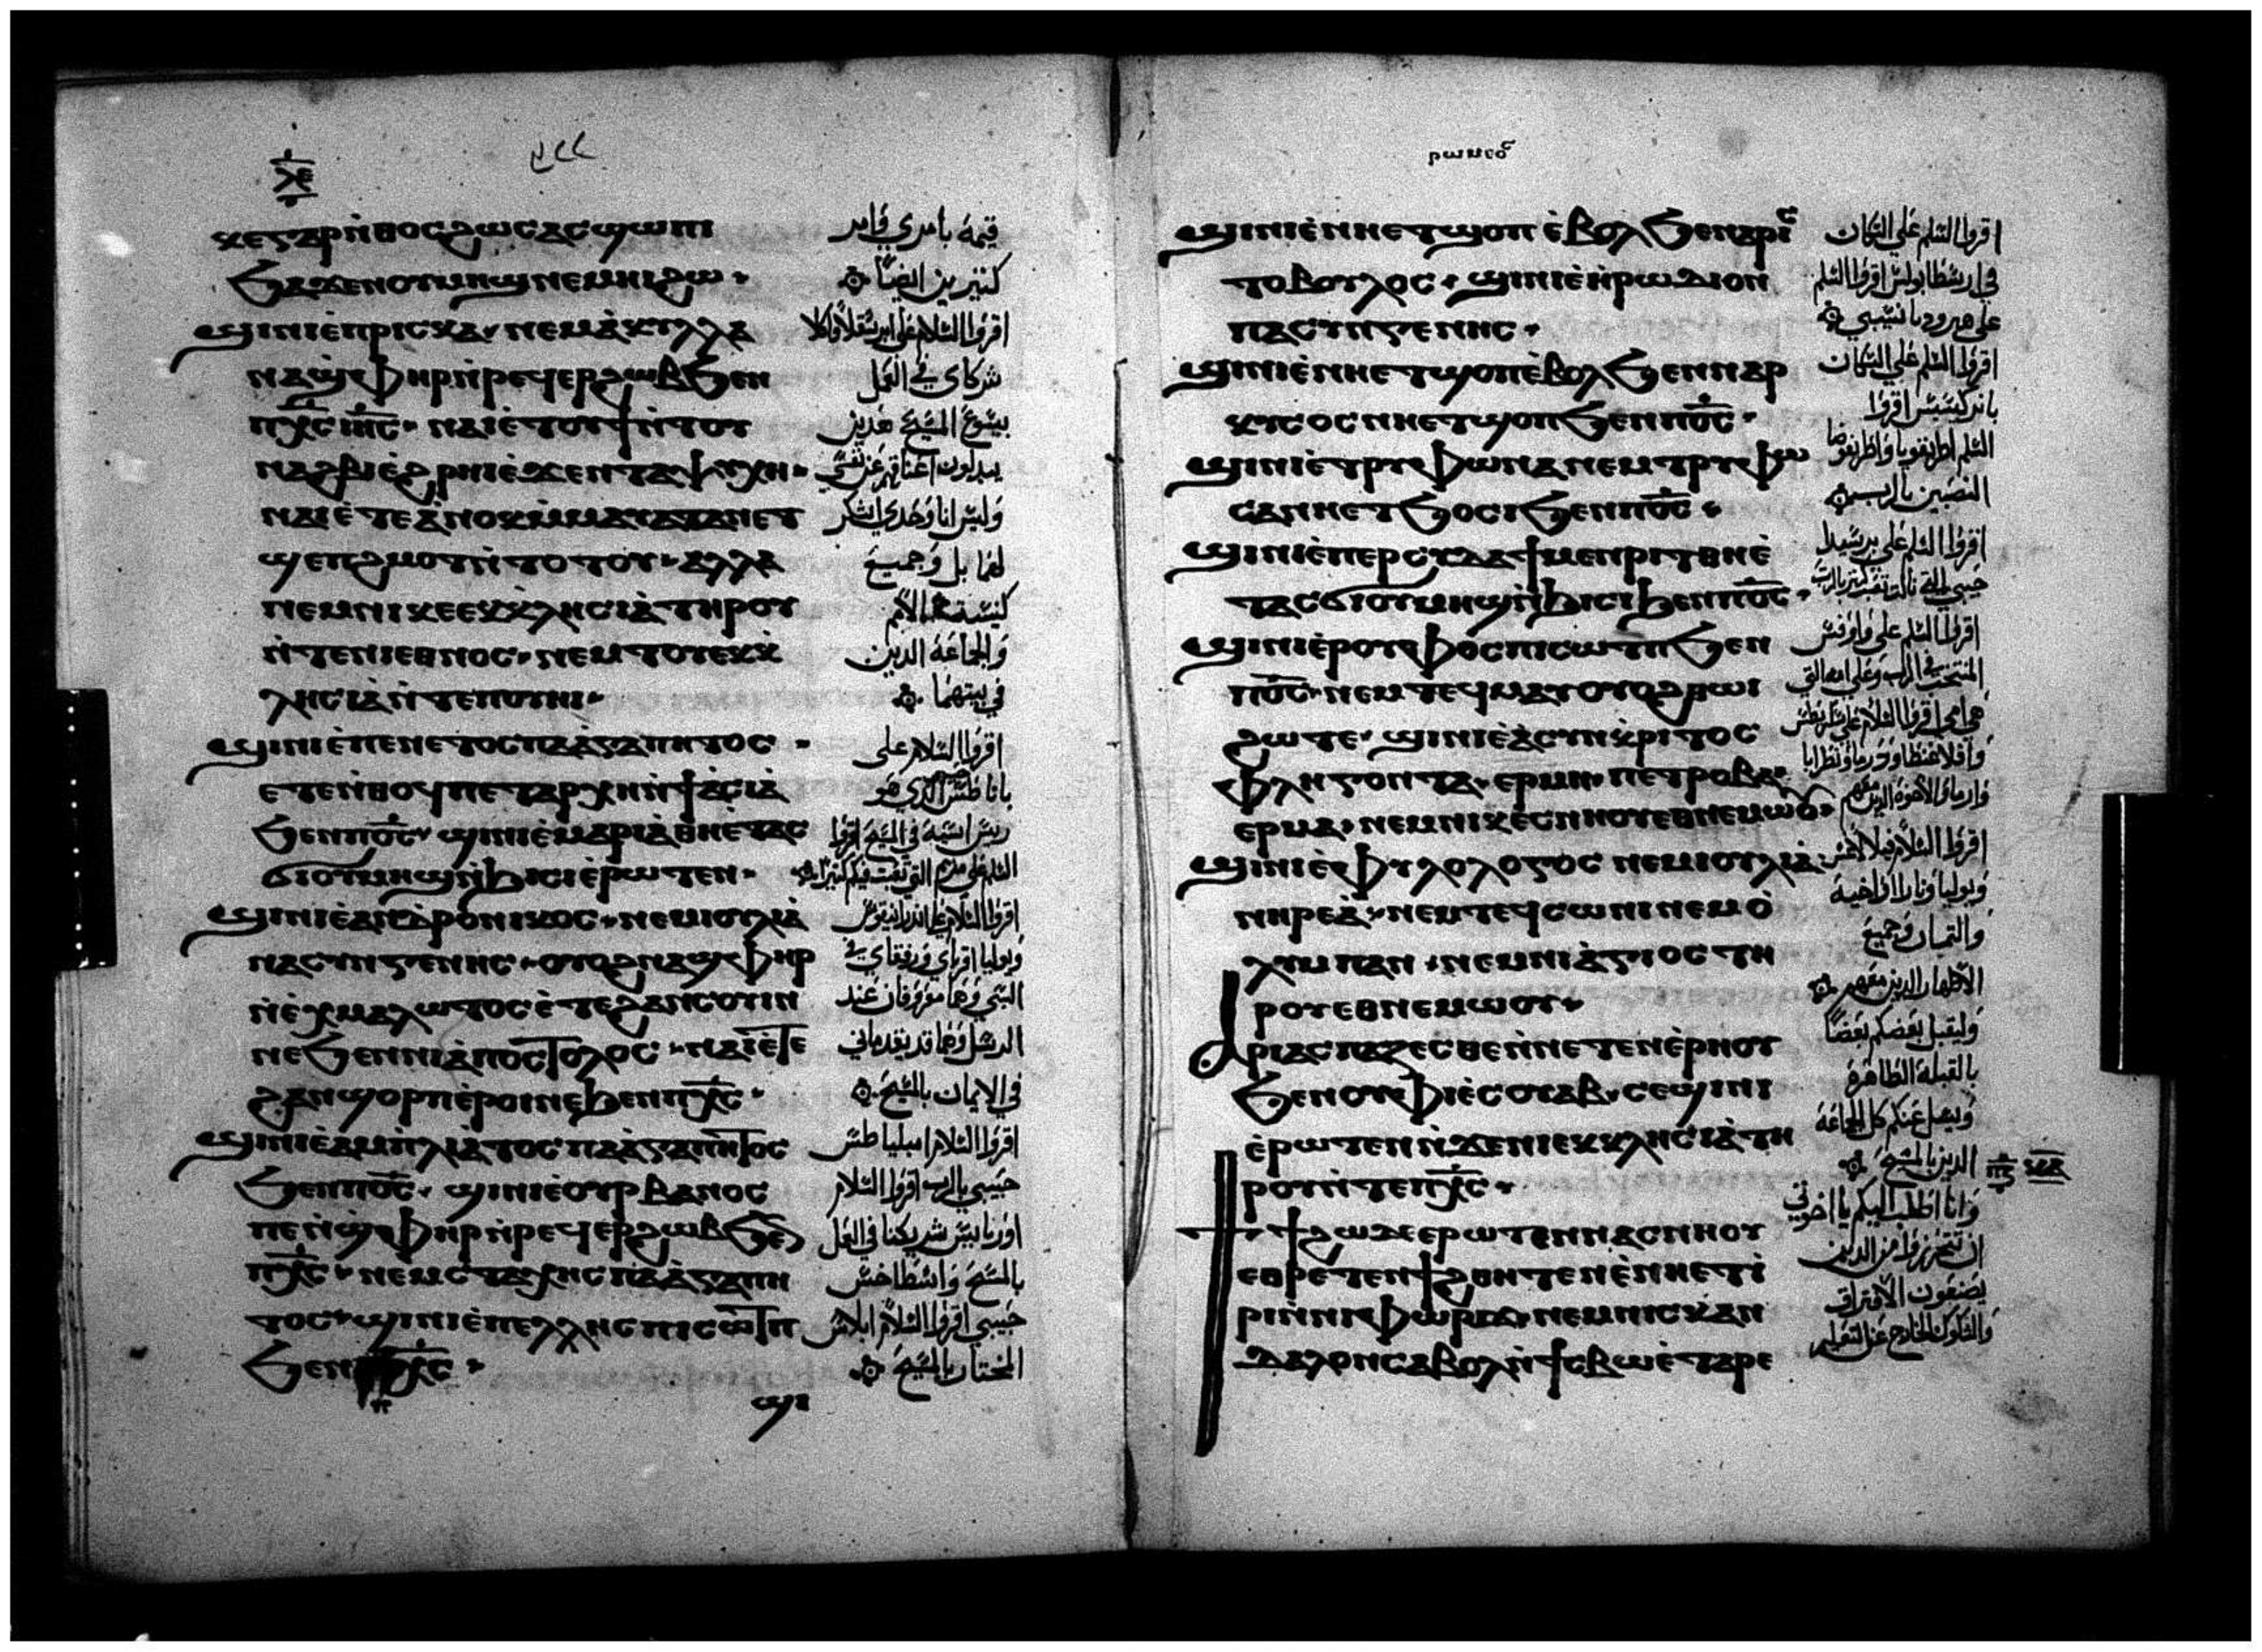 ⲗ̅ⲉ̅
ⲕⲉⲅⲁⲣⲛ̀ⲑⲟⲥϩⲱⲥⲁⲥϣⲱⲡⲓ
ϧⲁϫⲉⲛⲟⲩⲙⲏϣⲛⲉⲙⲛⲓϩⲱ·
ϣⲓⲛⲓⲉ̀ⲡⲣⲓⲥⲕⲁ·ⲛⲉⲙⲁ̀ⲕⲩⲗⲗⲁ
ⲛⲁϣ̀ⲫⲏⲣⲛ̀ⲣⲉϥⲉⲣϩⲱⲃϧⲉⲛ
ⲡⲭ̅ⲥ̅ⲓⲏ̅ⲥ̅· ⲛⲁⲓⲉ̀ⲧⲟⲩϯⲛ̀ⲧⲟⲩ
ⲛⲁϩⲃⲓⲉ̀ϩⲣⲏⲓⲉ̀ϫⲉⲛⲧⲁⲯⲩⲭⲏ·
ⲛⲁⲓⲉ̀ⲧⲉⲁ̀ⲛⲟⲕⲙ̀ⲙⲁⲩⲁⲧⲁⲛⲉⲧ
ϣⲉⲡϩⲙⲟⲧⲛ̀ⲧⲟⲧⲟⲩ·ⲁⲗⲗⲁ
ⲛⲉⲙⲛⲓⲕⲉⲉⲕⲕ̀ⲗⲏⲥⲓⲁ̀ⲧⲏⲣⲟⲩ
ⲛ̀ⲧⲉⲛⲓⲉⲑⲛⲟⲥ·ⲛⲉⲙⲧⲟⲩⲉⲕⲕ̀
ⲗⲏⲥⲓⲁ̀ⲛ̀ⲧⲉⲡⲟⲩⲏⲓ·
ϣⲓⲛⲓⲉ̀ⲡⲉⲛⲉⲧⲟⲥⲡⲁⲁ̀ⲅⲁⲡⲏⲧⲟⲥ·
ⲉⲧⲉⲛ̀ⲑⲟϥⲡⲉⲧⲁⲣⲭⲏⲛ̀ϯⲁ̀ⲥⲓⲁ̀
ϧⲉⲛⲡⲟ̅ⲥ̅· ϣⲓⲛⲓⲉ̀ⲙⲁⲣⲓⲁ̀ⲑⲏⲉ̀ⲧⲁⲥ
ϭⲓⲟⲩⲙⲏϣⲛ̀ϧⲓⲥⲓⲉ̀ⲣⲱⲧⲉⲛ·
ϣⲓⲛⲓⲉ̀ⲁⲛⲇ̀ⲣⲟⲛⲓⲕⲟⲥ·ⲛⲉⲙⲓⲟⲩⲗⲓⲁ̀
ⲛⲁⲥⲩⲛⲅⲉⲛⲏⲥ·ⲟⲩⲟϩⲛⲁϣ̀ⲫⲏⲣ
ⲛ̀ⲉ̀ⲭⲙⲁⲗⲱⲧⲟⲥⲉ̀ⲧⲉϩⲁⲛⲥⲟⲩⲓⲛ
ⲛⲉϧⲉⲛⲛⲓⲁ̀ⲡⲟⲥⲧⲟⲗⲟⲥ·ⲛⲁⲓⲉ̀ⲧⲉ
ϩⲁⲛϣⲟⲣⲡⲉ̀ⲣⲟⲓⲛⲉϧⲉⲛⲡⲭ̅ⲥ̅·
ϣⲓⲛⲓⲉ̀ⲁⲙⲡ̀ⲗⲓⲁ̀ⲧⲟⲥⲡⲁⲁ̀ⲅⲁⲡⲏⲧⲟⲥ
ϧⲉⲛⲡⲟ̅ⲥ̅· ϣⲓⲛⲓⲉ̀ⲟⲩⲣⲃⲁⲛⲟⲥ
ⲡⲉⲛϣ̀ⲫⲏⲣⲛ̀ⲣⲉϥⲉⲣϩⲱⲃϧⲉⲛ
ⲡⲭ̅ⲥ̅·ⲛⲉⲙⲥⲧⲁⲭⲏⲥⲡⲁⲁ̀ⲅⲁⲡⲏ
ⲧⲟⲥ·ϣⲓⲛⲓⲉ̀ⲡⲉⲗⲗⲏⲥⲡⲓⲥⲱⲧⲡ
ϧⲉⲛⲡⲭ̅ⲥ̅·
ϣⲓ
قيمة بامري وامر
كثيرين ايضًا
اقروا السلام على ابرسقلا واكلا
شركاي في العمل
بيسوع المسيح هذين
يبدلون اعناقهم عن نفسي
وليس انا وحدي اشكر
لهما بل وجميع
كنيسة الامم
والجماعة الذين
في بيتهما
اقروا السلام على
باناطس الذي هو
ريس اسيه في المسيح اقروا
السلم على مريم التي تعبت فيكم كثيرًا
اقروا السلام على اندرانيقوس
ويوليا اقرباي ورفقاي في
السبي وهما معروفان عند
الرسل وهما قد تقدماني
في الايمان بالمسيح
اقروا السلام امبلياطس
حبيبي بالرب اقروا السلام
اوربانيس شريكنا في العمل
بالمسيح واسطاخس
حبيبي اقروا السلام ابلاس
المختار بالمسيح
ϣⲓⲛⲓⲉ̀ⲛⲏⲉⲧϣⲟⲡⲉ̀ⲃⲟⲗϧⲉⲛⲁⲣⲓⲥ
ⲧⲟⲃⲟⲩⲗⲟⲥ·ϣⲓⲛⲓⲉ̀ⲏ̀ⲣⲱⲇⲓⲟⲛ
ⲡⲁⲥⲩⲛⲅⲉⲛⲏⲥ·
ϣⲓⲛⲓⲉ̀ⲛⲏⲉⲧϣⲟⲡⲉ̀ⲃⲟⲗϧⲉⲛⲛⲁⲣ
ⲕⲩⲥⲟⲥⲛⲏⲉⲧϣⲟⲡϧⲉⲛⲡⲟ̅ⲥ̅·
ϣⲓⲛⲓⲉ̀ⲧⲣⲩⲫⲱⲛⲁⲛⲉⲙⲧⲣⲩⲫⲱ
ⲥⲁⲛⲏⲉⲧϧⲟⲥⲓϧⲉⲛⲡⲟ̅ⲥ̅·
ϣⲓⲛⲓⲉ̀ⲡⲉⲣⲥⲩⲇⲁϯⲙⲉⲛⲣⲓⲧⲑⲏⲉ̀
ⲧⲁⲥϭⲓⲟⲩⲙⲏϣⲛ̀ϧⲓⲥⲓϧⲉⲛⲡⲟ̅ⲥ̅·
ϣⲓⲛⲓⲉ̀ⲣⲟⲩⲫⲟⲥⲡⲓⲥⲱⲧⲡϧⲉⲛ
ⲡⲟ̅ⲥ̅·ⲛⲉⲙⲧⲉϥⲙⲁⲩⲟⲩⲟϩⲑⲱⲓ
ϩⲱⲧⲉ·ϣⲓⲛⲓⲉ̀ⲁ̀ⲥⲩⲛⲕ̀ⲣⲓⲧⲟⲥ
ⲫⲗⲏⲅⲟⲛⲧⲁ·ⲉⲣⲙⲏ·ⲡⲉⲧⲣⲟⲃⲁ·
ⲉⲣⲙⲁ·ⲛⲉⲙⲛⲓⲕⲉⲥⲛⲏⲟⲩⲉⲑⲛⲉⲙⲱⲟⲩ·
ϣⲓⲛⲓⲉ̀ⲫⲩⲗⲟⲗⲟⲅⲟⲥ ⲛⲉⲙⲓⲟⲩⲗⲓⲁ·
ⲛⲏⲣⲉⲁ̀·ⲛⲉⲙⲧⲉϥⲥⲱⲛⲓⲛⲉⲙⲟ̀
ⲗⲩⲙⲡⲁⲛ·ⲛⲉⲙⲛⲓⲁ̀ⲅⲓⲟⲥⲧⲏ
ⲣⲟⲩⲉⲑⲛⲉⲙⲱⲟⲩ·
ⲁⲣⲓⲁⲥⲡⲁⲍⲉⲥⲑⲉⲛ̀ⲛⲉⲧⲉⲛⲉ̀ⲣⲏⲟⲩ
ϧⲉⲛⲟⲩⲫⲓⲉ̀ⲥⲟⲩⲁⲃ·ⲥⲉϣⲓⲛⲓ
ⲉ̀ⲣⲱⲧⲉⲛⲛ̀ϫⲉⲛⲓⲉⲕⲕⲗⲏⲥⲓⲁ̀ⲧⲏ
ⲣⲟⲩⲛ̀ⲧⲉⲡⲭ̅ⲥ̅·
ϯϩⲱⲇⲉⲉⲣⲱⲧⲉⲛⲛⲁⲥⲛⲏⲟⲩ
ⲉⲑⲣⲉⲧⲉⲛϯϩⲑⲏⲧⲉⲛⲉ̀ⲛⲏⲉⲧⲓ̀
ⲣⲓⲛ̀ⲛⲓⲫⲱⲣϫ·ⲛⲉⲙⲛⲓⲥⲕⲁⲛ
ⲇⲁⲗⲟⲛⲥⲁⲃⲟⲗⲛ̀ϯⲥⲃⲱⲉ̀ⲧⲁⲣⲉ
اقروا السلم على السكان
في ارسطابولس اقروا السلم
على هيروديا نسيبي
اقروا السلم على السكان
بانركيسيس اقروا
السلم اطريفونا واطريفوسا
التعبين بالرب
اقروا السلم على برسيدا
حبيبي التي نالت تعب كثير بالرب
اقروا السلم على روفس
المنتخب في الرب وعلى امه التي
هي امي اقروا السلام على
وارما والاخوة الذين معهم
اقروا السلام فيلالاغس
ويوليا ونارا واخيه
والتمبان وجميع
الاطهار الذين معهم
وليقبل بعضكم بعضًا
بالقبلة الطاهرة
ويسل عنكم كل الجماعة
الذين بالمسيح
وانا اطلب اليكم يا اخوتي
ان تتحرزوا من الذين
يصنعون الافتراق
والشكوك الخارج عن التعليم